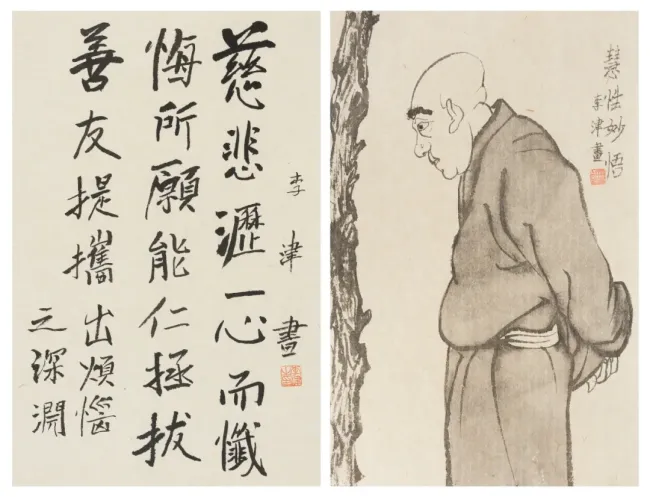 慈悲瀝一心而懺
悔所願能仁拯拔
善友提攜出煩惱
之深淵
李津畫
慧性妙悟
李津畫